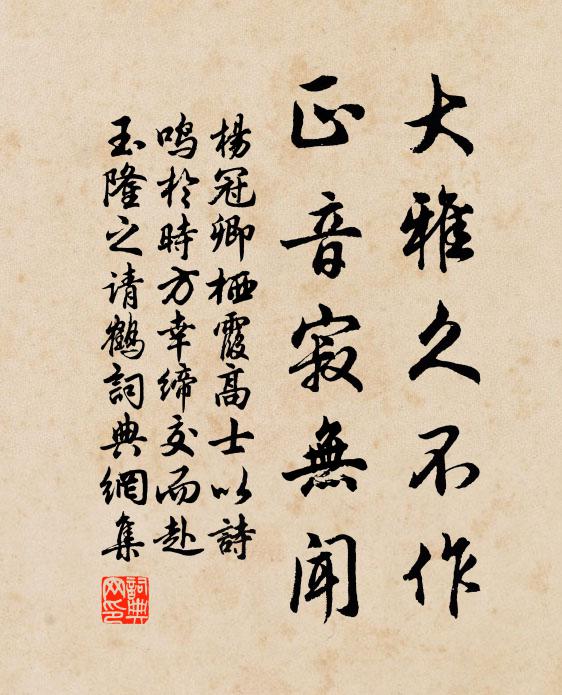 大雅久不作
正音寂無聞
楊冠卿栖霞高士以詩
鳴於時方幸締交而赴
玉隆之请鶴詞典網集
詞典網印